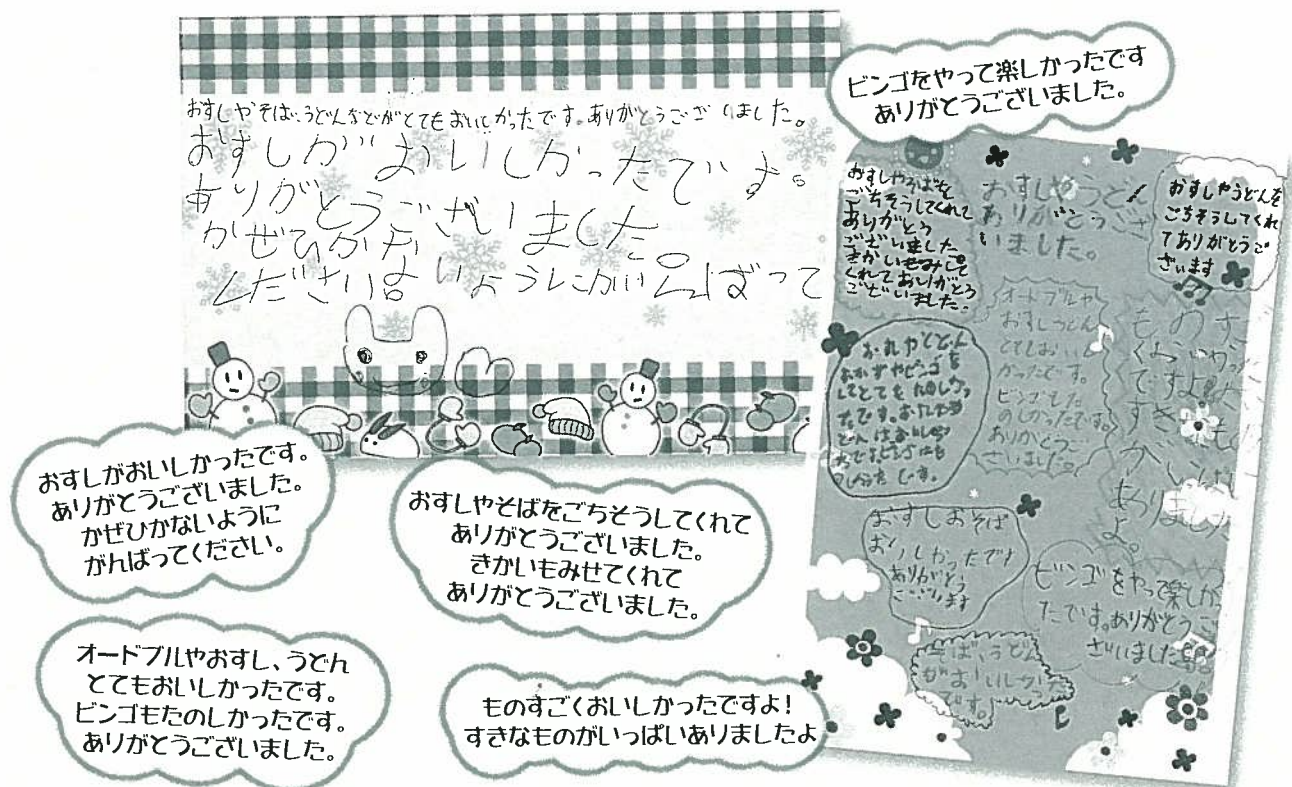 おすしやそば、うどんなどがとてもおいしかったです。ありがとうございました。
おすしがおいしかったです。
ありがとうございました。
かぜひかないようにがんばって
ください。
ビンゴをやって楽しかったです
ありがとうございました。
おすしやそばを
ごちそうしてくれて
ありがとう
ございました。
きかいもみして
くれてありがとう
ございました。
おすしやうどん
ありがとうござ
いました。
おすしやうどんを
ごちそうしてくれ
てありがとうご
ざいます
オードブルや
おすしうどん
とてもおいし
かったです。
ビンゴもた
のしかったです。
ありがとうご
ざいました。
ものすご
くおいしかった
ですよ
すきなもの
がいっぱい
ありました
よ。
おすしおそば
おいしかったです
ありがとう
ございます
ビンゴをやって楽しかっ
たです。ありがとうご
ざいました。
そば、うどん
がおいしかった
です。
おすしがおいしかったです。
ありがとうございました。
かぜひかないように
がんばってください。
おすしやそばをごちそうしてくれて
ありがとうございました。
きかいもみせてくれて
ありがとうございました。
オードブルやおすし、うどん
とてもおいしかったです。
ビンゴもたのしかったです。
ありがとうございました。
ものすごくおいしかったですよ!
すきなものがいっぱいありましたよ